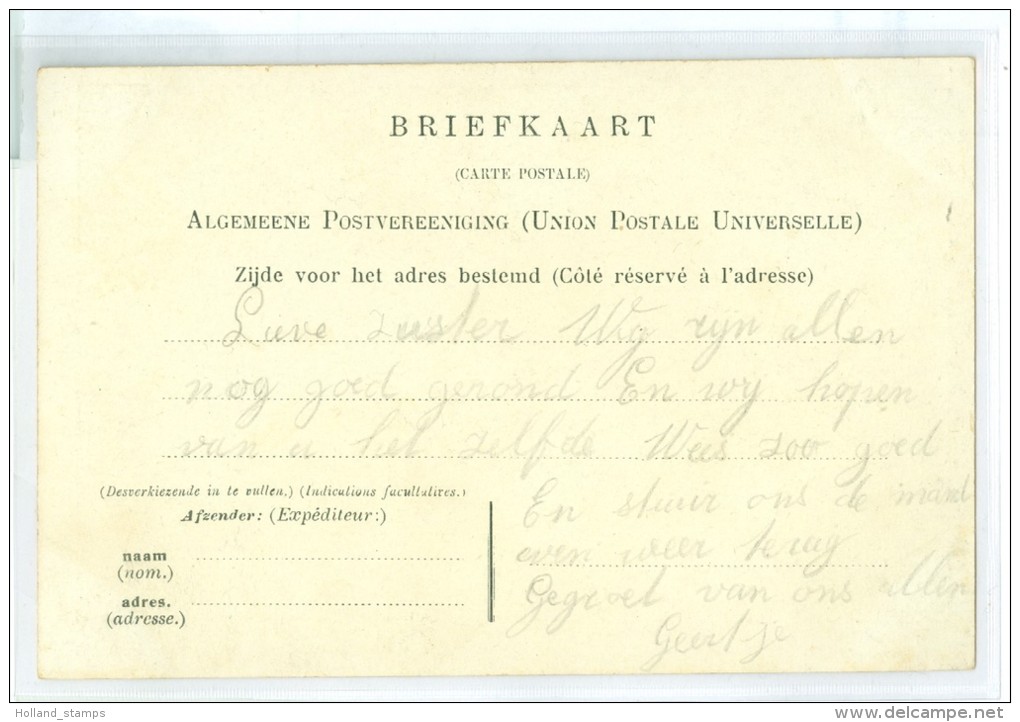 BRIEFKAART
(CARTE POSTALE)
ALGEMEENE POSTVEREENIGING (UNION POSTALE UNIVERSELLE)
Zijde voor het adres bestemd (Côté réservé à l'adresse)
Lieve zuster Wy zyn allen
nog goed gezond En wy hopen
van u het zelfde Wees zoo goed
(Desverkiezende in te vullen.) (Indications facultatives.)
Afzender: (Expéditeur:)
naam
(nom.)
adres.
(adresse.)
En stuur ons de mand
even weer terug
Gegroet van ons allen
Geertje
Holland_stamps
www.delcampe.net